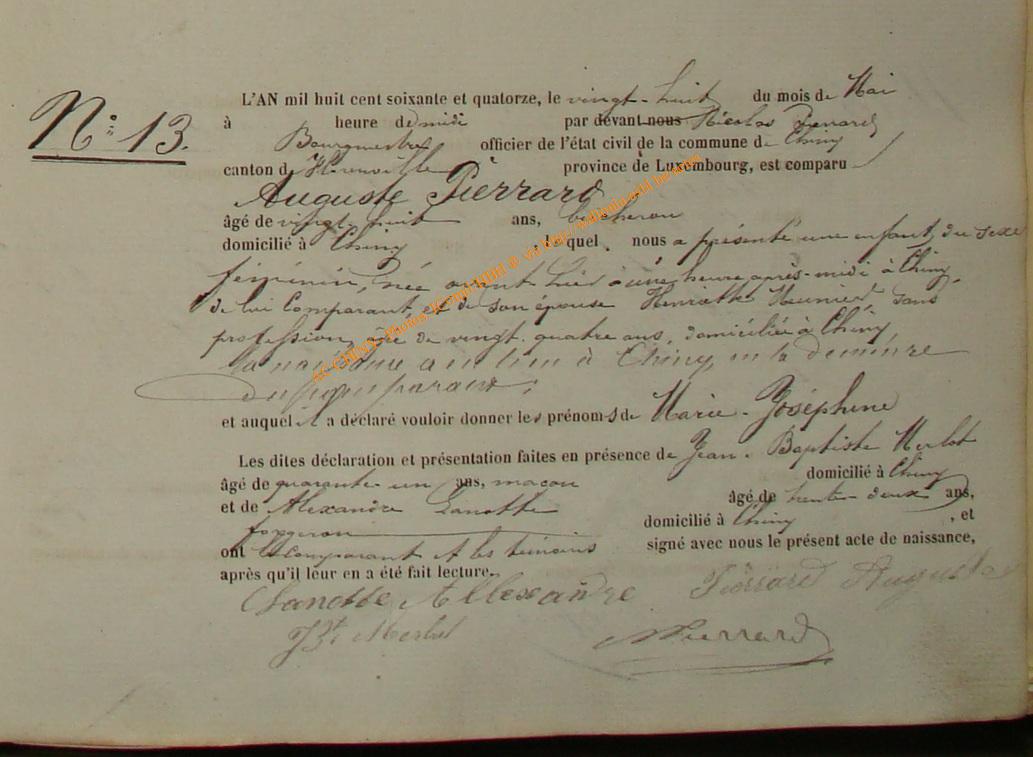 N° 13.
L'AN mil huit cent soixante et quatorze, le vingt-huit du mois de Mai
à heure de midi par devant nous Nicolas Pierrard
Bourgmestre officier de l'état civil de la commune de Chiny
canton de Florenville province de Luxembourg, est comparu
Auguste Pierrard
âgé de vingt-huit ans, bucheron
domicilié à Chiny, lequel nous a présenté une enfant du sexe
féminin, née avant hier à une heure après-midi à Chiny,
de lui Comparant, et de son épouse Henriette Meunier, sans
profession, âgée de vingt quatre ans, domiciliée à Chiny,
la naissance a eu lieu à Chiny, en la demeure
du comparant;
et auquel il a déclaré vouloir donner les prénoms de Marie-Joséphine
Les dites déclaration et présentation faites en présence de Jean-Baptiste Merlot
âgé de quarante-un ans, maçon domicilié à Chiny
et de Alexandre Lanotte âgé de trente-deux ans,
forgeron domicilié à Chiny, et
ont le comparant et les témoins signé avec nous le présent acte de naissance,
après qu'il leur en a été fait lecture.
Lanotte Allexandre Pierrard Auguste
JBt Merlot NPierrard